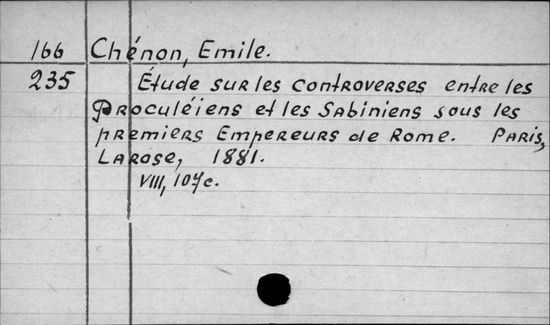 166 Chénon, Emile.
235 Étude sur les controverses entre les
Proculéiens et les Sabiniens sous les
premiers Empereurs de Rome. Paris,
Larose, 1881.
VIII, 107c.